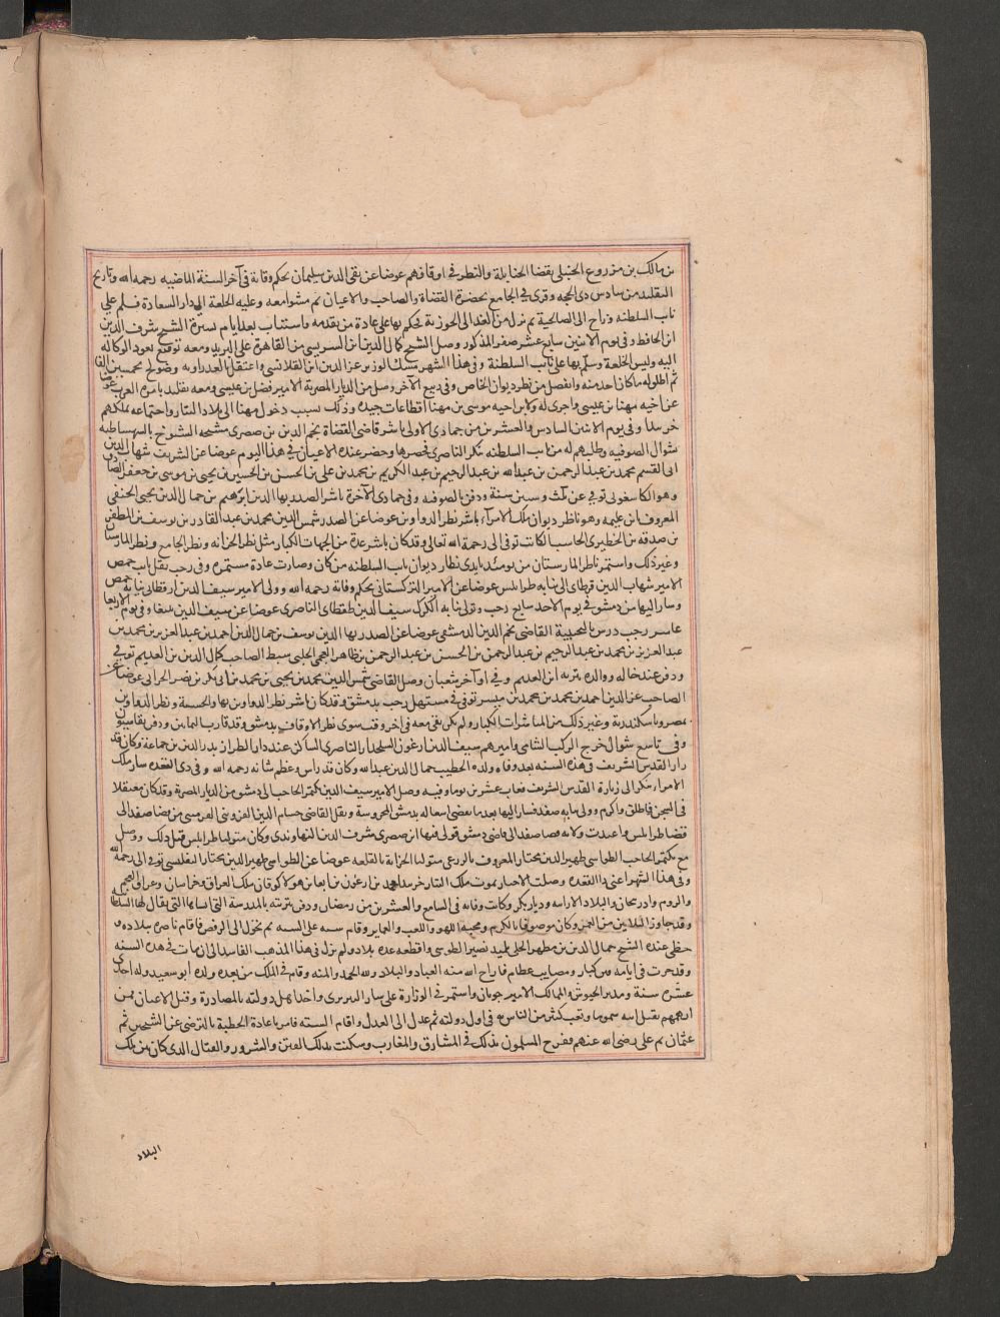 بن مالك بن مزروع الحنبلي بقضا الحنابلة والنظر في اوقافهم عوضا عن تقى الدين سليمان بحكم وفاته في آخر السنة الماضيه رحمه الله وتاريخ
التقليد من سادس ذى الحجه وقرى في الجامع بحضرة القضاة والصاحب والاعيان ثم مشوا معه وعليه الخلعة الى دار السعادة فسلم على
نايب السلطنه وراح الى الصالحية ثم نزل من الغد الى الجوزية فحكم بها على عادة من تقدمه واستناب بعد ايام الشيخ شرف الدين
ابن الحافظ وفى يوم الاثنين سابع عشر صفر المذكور وصل الشيخ كمال الدين ابن الشريسى من القاهرة على البريد ومعه توقيع بعود الوكاله
اليه ولبس الخلعة وسلم بها على نايب السلطنة وفى هذا الشهر مسك الوزير عز الدين ابن القلانسى واعتقل بالعذراويه وصولح بخمسين الفا
ثم اطلق له ما كان اخذ منه وانفصل من نظر ديوان الخاص وفى ربيع الآخر وصل من الديار المصرية الامير فضل بن عيسى ومعه تقليد بامرة العرب عوضا
عن اخيه مهنا بن عيسى واجرى له ولابن اخيه موسى بن مهنا اقطاعات جيده وذلك بسبب دخول مهنا الى بلاد التتار واجتماعه بملكهم
خربندا وفى يوم الاثنين السادس والعشرين من جمادى الاولى باشر قاضى القضاة نجم الدين بن صصرى مشيخه الشيوخ بالسميساطيه
بسوال الصوفيه وطلبهم له من نايب السلطنه تنكز الناصرى فحضرها وحضر عنده الاعيان في هذا اليوم عوضا عن الشريف شهاب الدين
ابى القسم محمد بن عبد الرحمن بن عبد الله بن عبد الرحيم بن عبد الكريم بن محمد بن على بن الحسن بن الحسين بن يحيى بن موسى بن جعفر الصادق
وهو الكاشغرى توفى عن ثلث وستين سنة ودفن بالصوفيه وفى جمادى الآخرة باشر الصدر بها الدين ابرهيم بن جمال الدين يحيى الحنفى
المعروف بابن عليمه وهو ناظر ديوان ملك الامراء باشر نظر الدواوين عوضا عن الصدر شمس الدين محمد بن عبد القادر بن يوسف بن المظفر
بن صدقه بن الخطيرى الحاسب الكاتب توفى الى رحمة الله تعالى وقد كان باشر عدة من الجهات الكبار مثل نظر الخزانه ونظر الجامع ونظر المارستان
وغير ذلك واستمر ناظر المارستان من يومئذ بايدى نظار ديوان نايب السلطنه من كان وصارت عادة مستمره وفى رجب نقل نايب حمص
الامير شهاب الدين قرطاى الى نيابه طرابلس عوضا عن الامير التركستانى بحكم وفاته رحمه الله وولى الامير سيف الدين ارقطاى نيابة حمص
وسار اليها من دمشق في يوم الاحد سابع رجب وتولى نيابه الكرك سيف الدين طقطاى الناصرى عوضا عن سيف الدين بيبغا وفى يوم الاربعا
عاشر رجب درس بالنجيبية القاضى نجم الدين الدمشقى عوضا عن الصدر بها الدين يوسف بن جمال الدين احمد بن عبد العزيز بن محمد بن
عبد العزيز بن محمد بن عبد الرحيم بن عبد الرحمن بن الحسن بن عبد الرحمن بن ظاهر العجمى الحلبى سبط الصاحب كمال الدين بن العديم توفى
ودفن عند خاله ووالده بتربة ابن العديم وفى اواخر شعبان وصل القاضى شمس الدين محمد بن يحيى بن محمد بن ابى بكر بن نصر الحرانى عوضا عن
الصاحب عز الدين احمد بن محمد بن محمد بن ميسر توفى في مستهل رجب بدمشق وقد كان باشر نظر الدواوين بها والحسبة ونظر الدواوين
بمصر وباسكندرية وغير ذلك من المباشرات الكبار ولم يكن بقى معه في اخر وقت سوى نظر الاوقاف بدمشق وقد قارب الثمانين ودفن بقاسيون
وفى تاسع شوال خرج الركب الشامى واميرهم سيف الدين ارغون السلحدار الناصرى الساكن عند دار الطراز بدر الدين بن جماعة وكان قد
زار القدس الشريف في هذه السنه بعد وفاه ولده الخطيب جمال الدين عبد الله وكان قد راس وعظم شانه رحمه الله وفى ذى القعده سار ملك
الامراء تنكز الى زيارة القدس الشريف فغاب عشرين يوما وفيه وصل الامير سيف الدين بكتمر الحاجب الى دمشق من الديار المصرية وقد كان معتقلا
في السجن فاطلق واكرم وولى نيابه صفد فسار اليها بعد ما قضى اشغاله بدمشق المحروسة ونقل القاضى حسام الدين القزوينى القرمسى من قضا صفد الى
قضا طرابلس واعيدت ولاية قضا صفد الى قاضى دمشق فولى فيها ابن صصرى شرف الدين النهاوندى وكان متوليا طرابلس قبل ذلك ووصل
مع بكتمر الحاجب الطواشى ظهير الدين مختار المعروف بالزرعى متوليا الخزانة بالقلعه عوضا عن الطواشى ظهير الدين مختار البلقسى توفى الى رحمة الله
وفى هذا الشهر اعنى ذا القعده وصلت الاخبار بموت ملك التتار خربندا محمد بن ارغون بن ابغا بن هولاكو قان ملك العراق وخراسان وعراق العجم
والروم واذربيجان والبلاد الارمنيه وديار بكر وكانت وفاته في السابع والعشرين من رمضان ودفن بتربته بالمدينة التى انشاها التى يقال لها السلطا
وقد جاوز الثلاثين من العمر وكان موصوفا بالكرم ومحبة اللهو واللعب والعماير واقام سنه على السنه ثم تحول الى الرفض فاقام ناصره ببلاده و
حظى عنده الشيخ جمال الدين بن مطهر الحلى تلميذ نصير الطوسى واقطعه عدة بلاد ولم يزل في هذا المذهب الفاسد الى ان مات في هذه السنه
وقد جرت في ايامه فتن كبار ومصايب عظام فاراح الله منه العباد والبلاد ولله الحمد والمنه وقام في الملك من بعده ولده ابو سعيد وله احدى
عشره سنة ومدبر الجيوش والممالك الامير جوبان واستمر في الوزارة على شاه التبريزى واخذ اهل دولته بالمصادرة وقتل الاعيان ممن
اتهمهم بقتل ابيه مسموما ولعب كثير من الناس به في اول دولته ثم عدل الى العدل واقام السنه فامر باعادة الخطبة بالترضى عن الشيخين ثم
عثمان ثم على رضى الله عنهم ففرح المسلمون بذلك في المشارق والمغارب وسكنت بذلك الفتن والشرور والقتال الذى كان بين تلك
البلاد